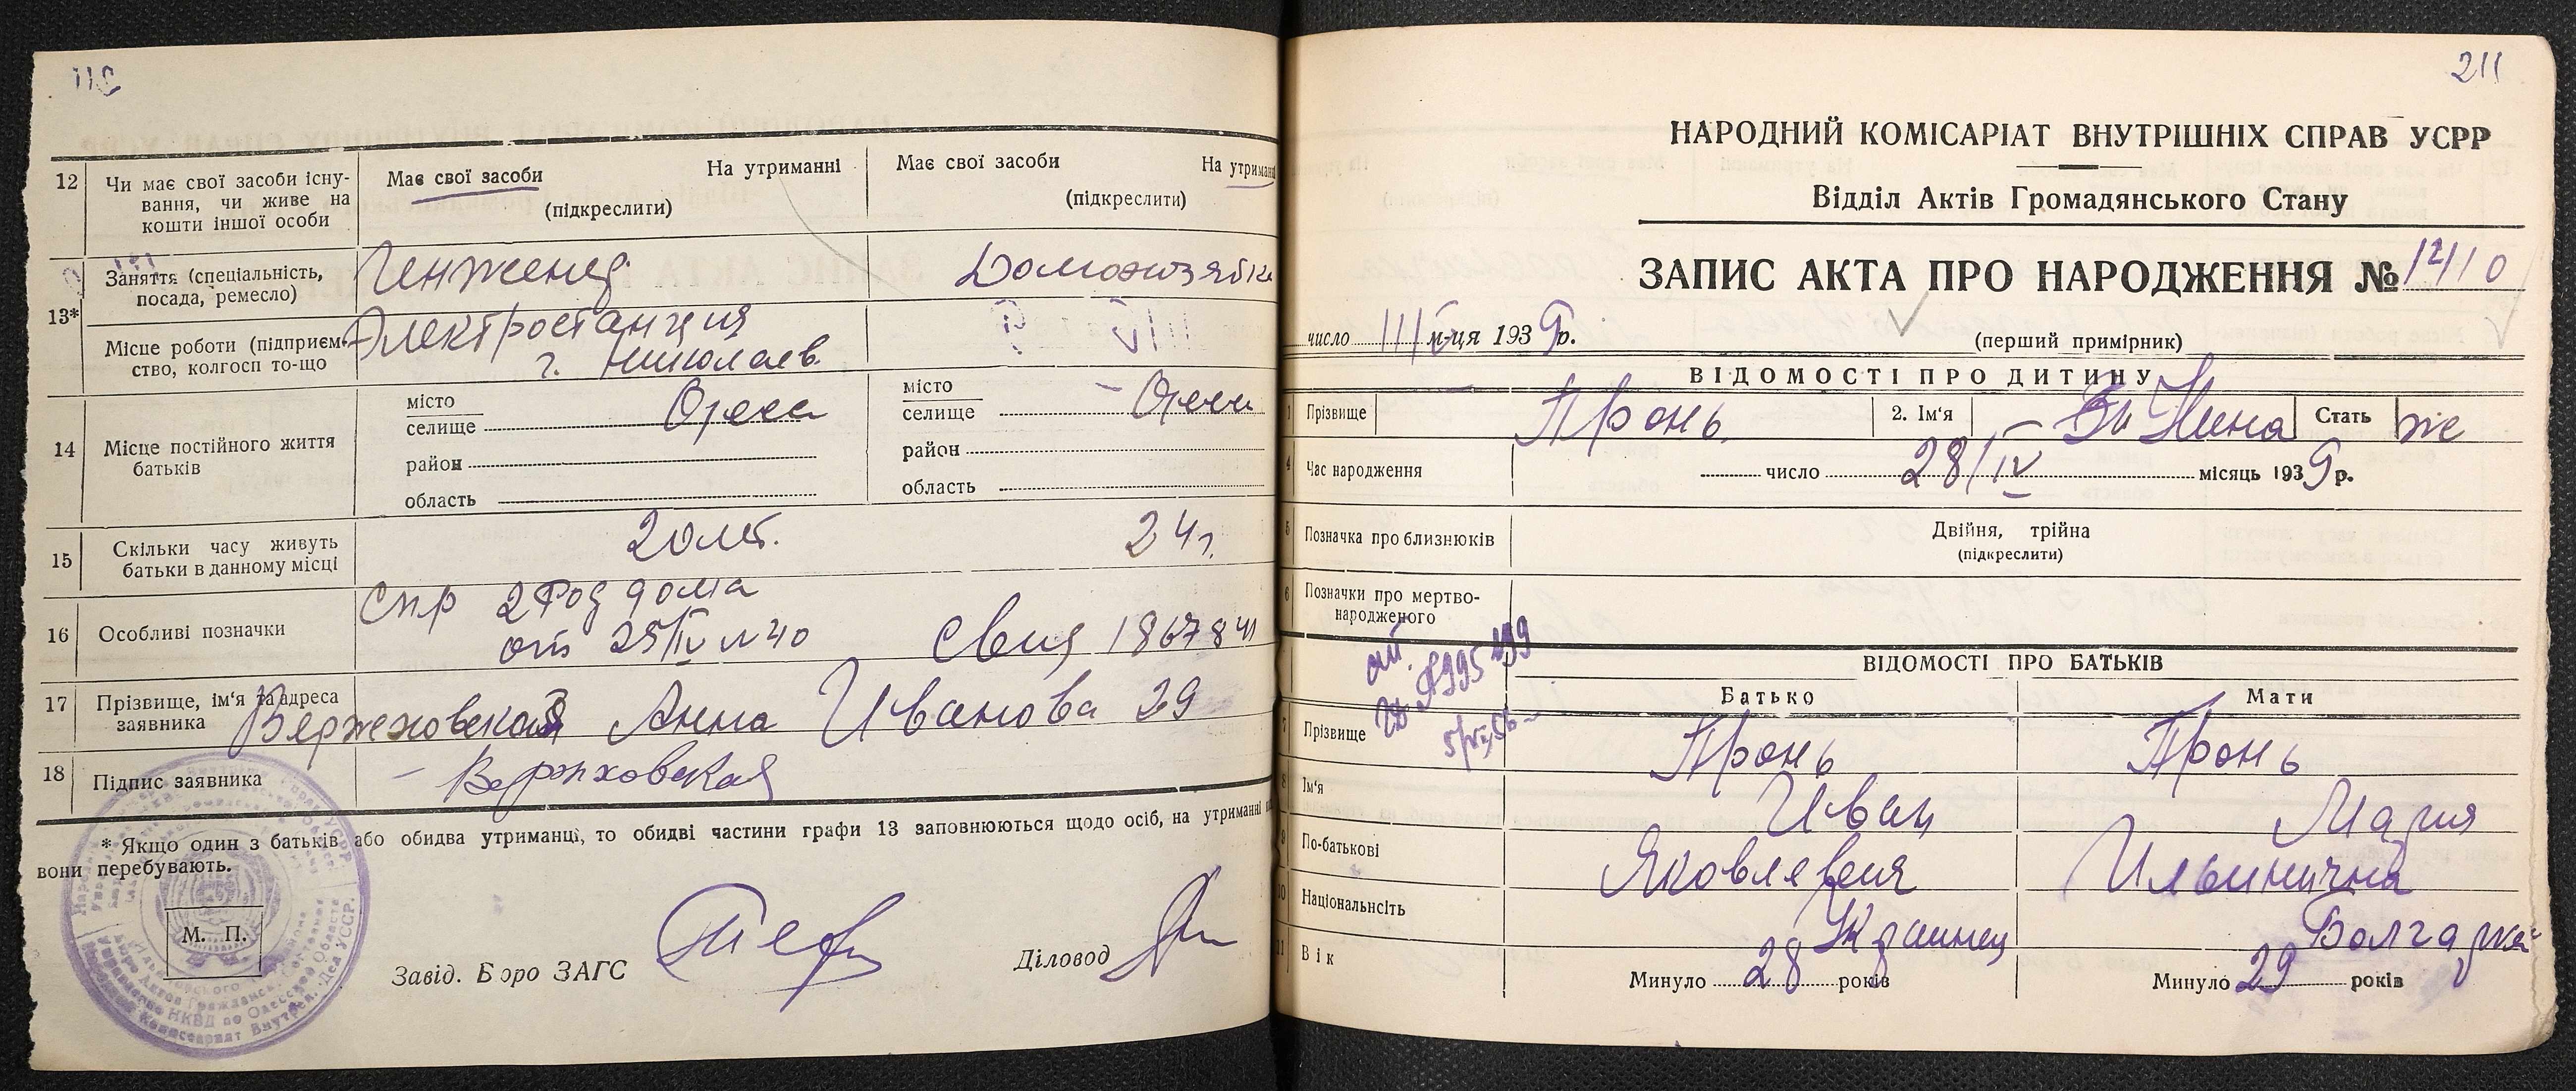 12
Чи має свої засоби існу-
вання, чи живе на
кошти іншої особи
Має свої засоби
На утриманні
(підкреслити)
Має свої засоби
На утриман
(підкреслити)
13*
Заняття (спеціальність,
посада, ремесло)
Инженер
Домохозяйка
Місце роботи (підприєм-
ство, колгосп то-що
Электростанция
г. Николаев
14
Місце постійного життя
батьків
місто
селище
Одесса
район
область
місто
селище
Одесса
район
область
15
Скільки часу живуть
батьки в данному місці
20 лет.
24 г.
16
Особливі позначки
Спр 2 Род дома
от 25/IV N 40
17
Прізвище, ім'я та адреса
заявника
Вержеховская Анна Иванова 29
18
Підпис заявника
* Якщо один з батьків або обидва утриманці, то обидві частини графи 13 заповнюються щодо осіб, на утриманні
вони перебувають.
М. П.
Завід. Бюро ЗАГС
Діловод
211
НАРОДНИЙ КОМІСАРІАТ ВНУТРІШНІХ СПРАВ УСРР
Відділ Актів Громадянського Стану
ЗАПИС АКТА ПРО НАРОДЖЕННЯ № 1210
число м-ця 1939 р.
(перший примірник)
ВІДОМОСТІ ПРО ДИТИНУ
1
Прізвище
Пронь
2. Ім'я
Нина
Стать
же
4
Час народження
число 28/IV місяць 1939 р.
5
Позначка про близнюків
Двійня, трійна
(підкреслити)
6
Позначки про мертво-
народженого
ВІДОМОСТІ ПРО БАТЬКІВ
Батько
Мати
7
Прізвище
Пронь
Пронь
8
Ім'я
Иван
Мария
9
По-батькові
Яковлевич
Ильинична
10
Національність
Украинец
Болгарка
11
Вік
Минуло 28 років
Минуло 29 років